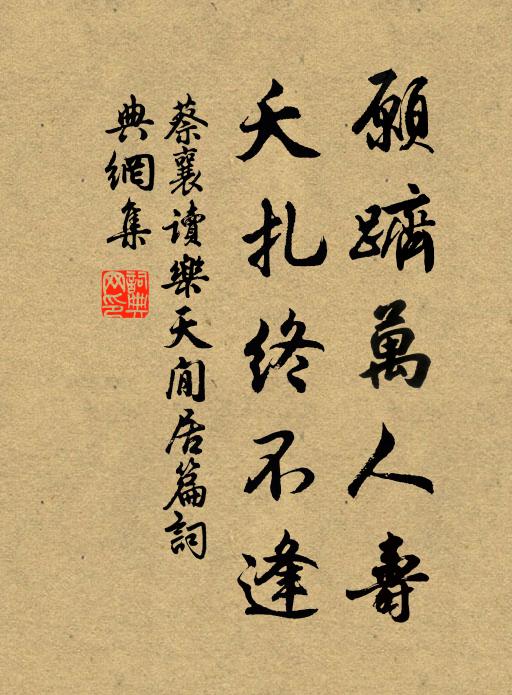 願躋萬人壽
夭扎終不逢
蔡襄讀樂天閒居篇詞
典網集
詞典
网印